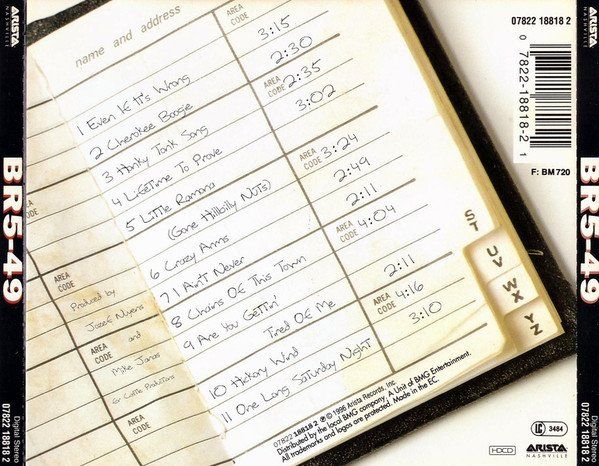 ARISTA
NASHVILLE
BR5-49
Digital Stereo
07822 18818 2
name and address
AREA CODE
1 Even If It's Wrong 3:15
2 Cherokee Boogie 2:30
AREA CODE
3 Honky Tonk Song 2:35
4 Lifetime To Prove 3:02
5 Little Ramona
(Gone Hillbilly Nuts)
AREA CODE 3:24
6 Crazy Arms 2:49
7 I Ain't Never 2:11
8 Chains Of This Town
AREA CODE 4:04
9 Are You Gettin'
Tired Of Me 2:11
10 Hickory Wind
AREA CODE 4:16
11 One Long Saturday Night 3:10
AREA CODE
Produced by
Jozef Nuyens
AREA CODE
and
Mike Janas
For Castle Productions
AREA CODE
ST
UV
WX
YZ
07822 18818 2
0 7822-18818-2 1
F: BM 720
07822 18818 2 ℗ © 1996 Arista Records, Inc.
Distributed by the local BMG company. A Unit of BMG Entertainment.
All trademarks and logos are protected. Made in the EC.
LC 3484
HDCD
ARISTA
NASHVILLE
ARISTA
NASHVILLE
BR5-49
Digital Stereo
07822 18818 2